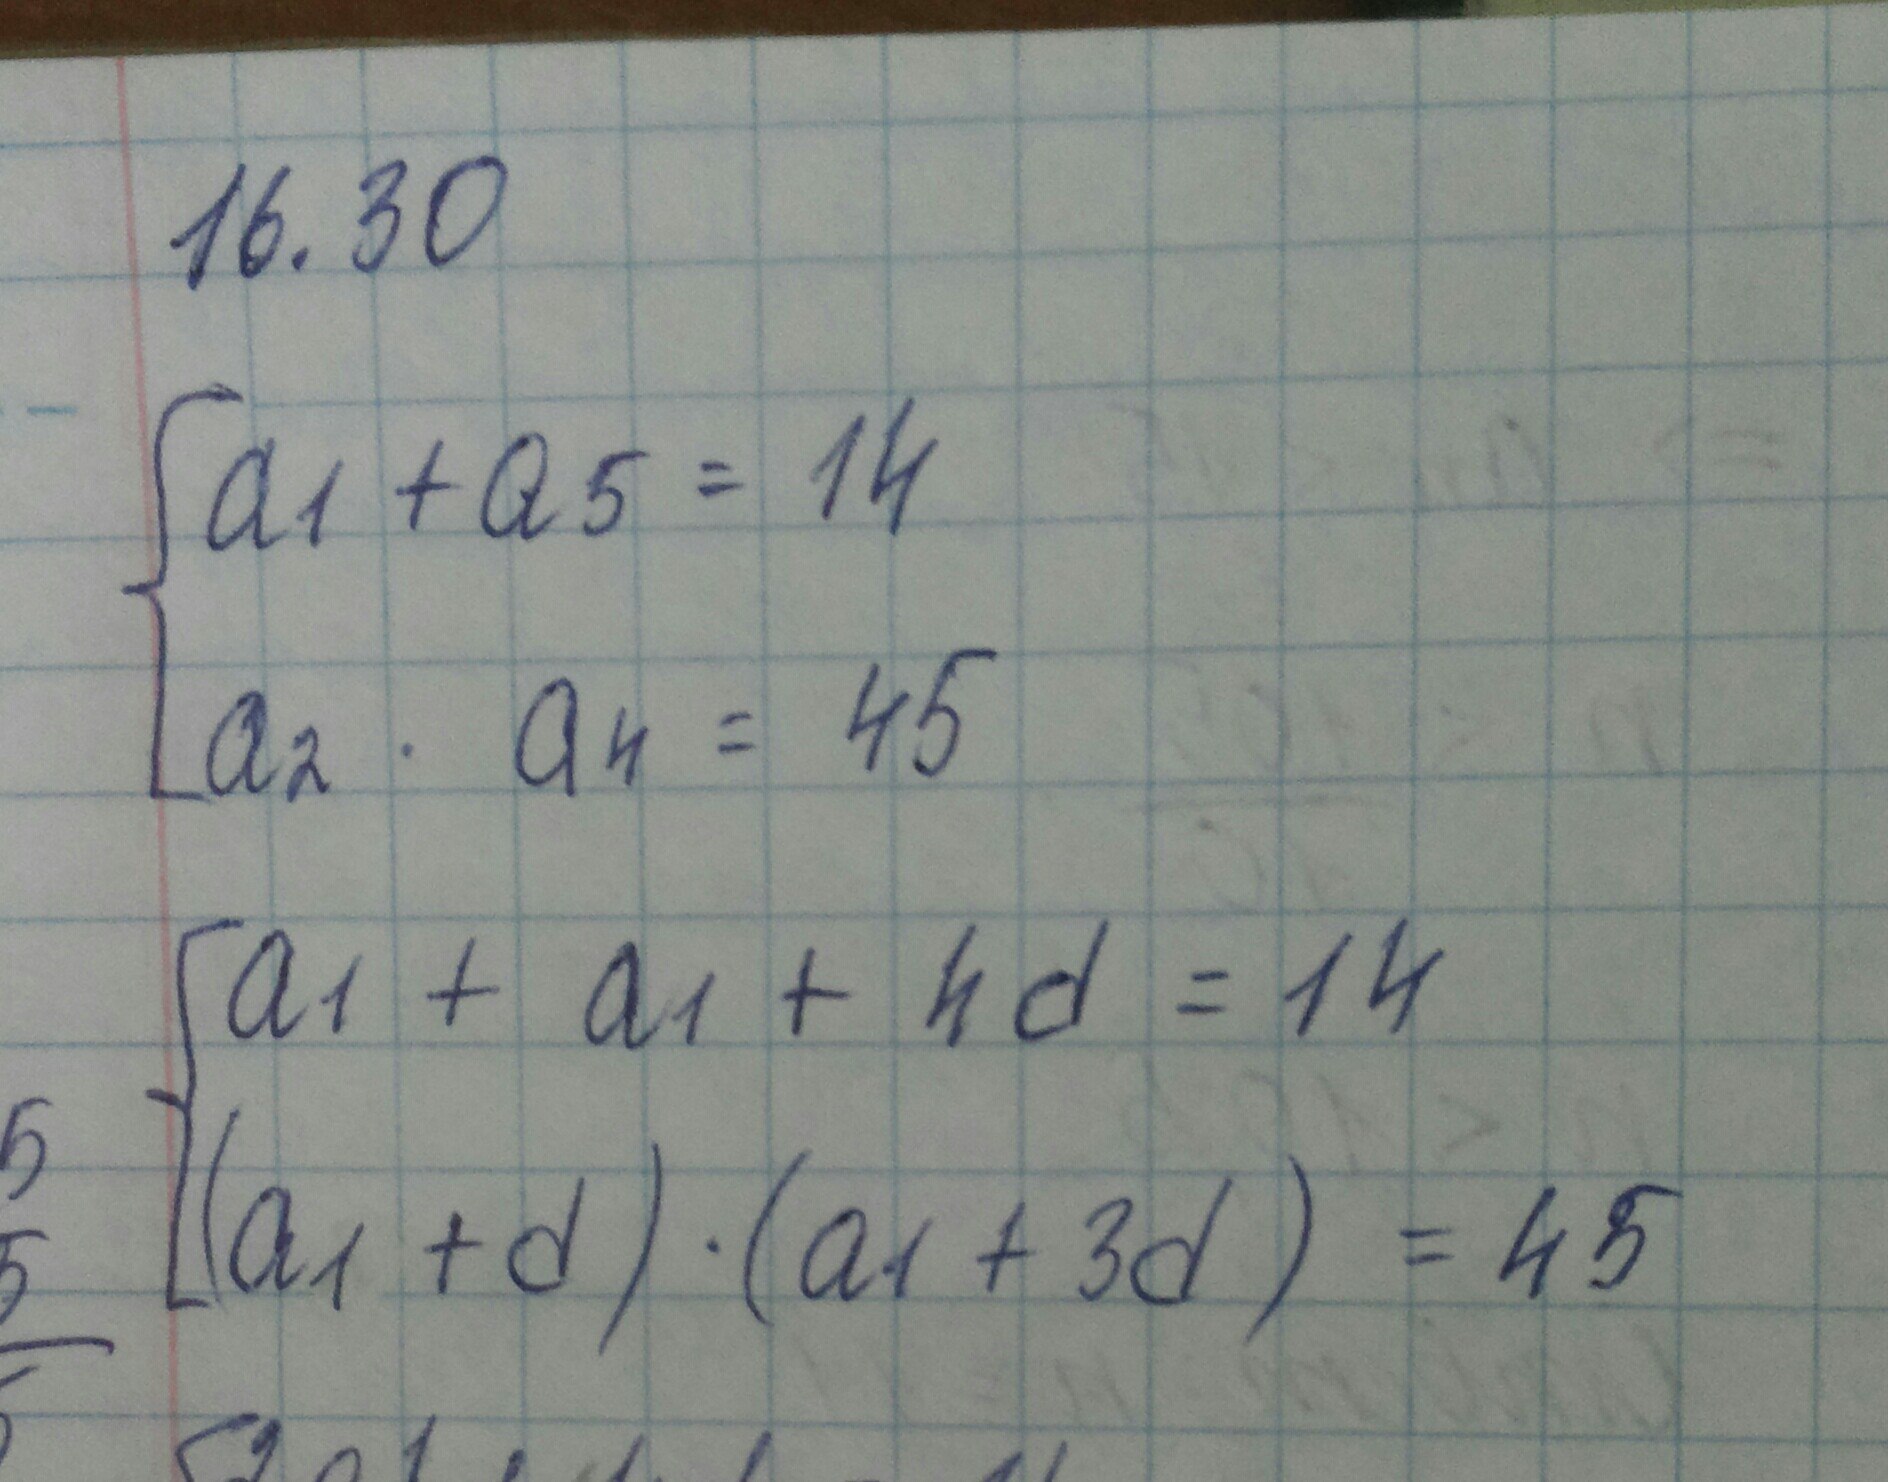 16.30
a1 + a5 = 14
a2 · a4 = 45
a1 + a1 + 4d = 14
5
(a1 + d) · (a1 + 3d) = 45
5